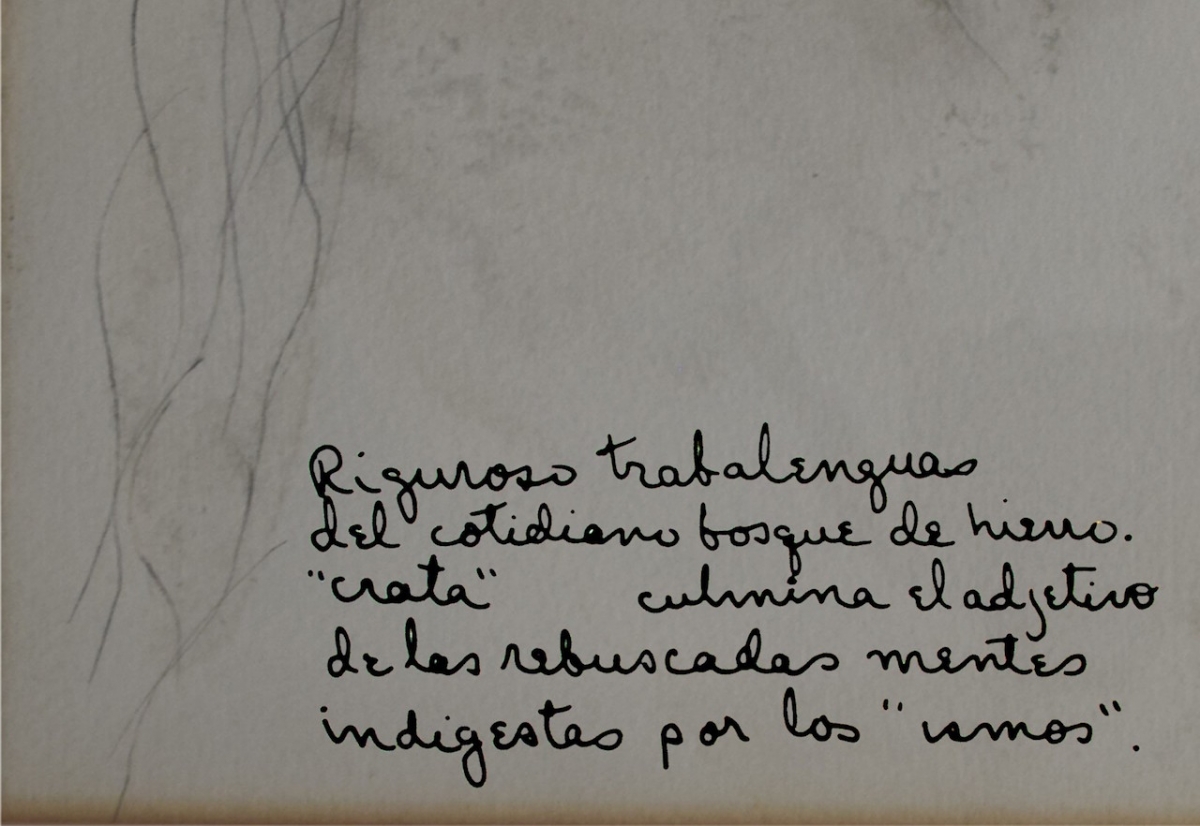 Riguroso trabalenguas
del cotidiano bosque de hierro.
"crata" culmina el adjetivo
de las rebuscadas mentes
indigestas por los "ismos".